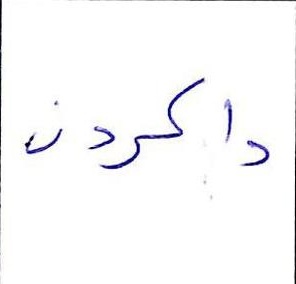 دا کردن